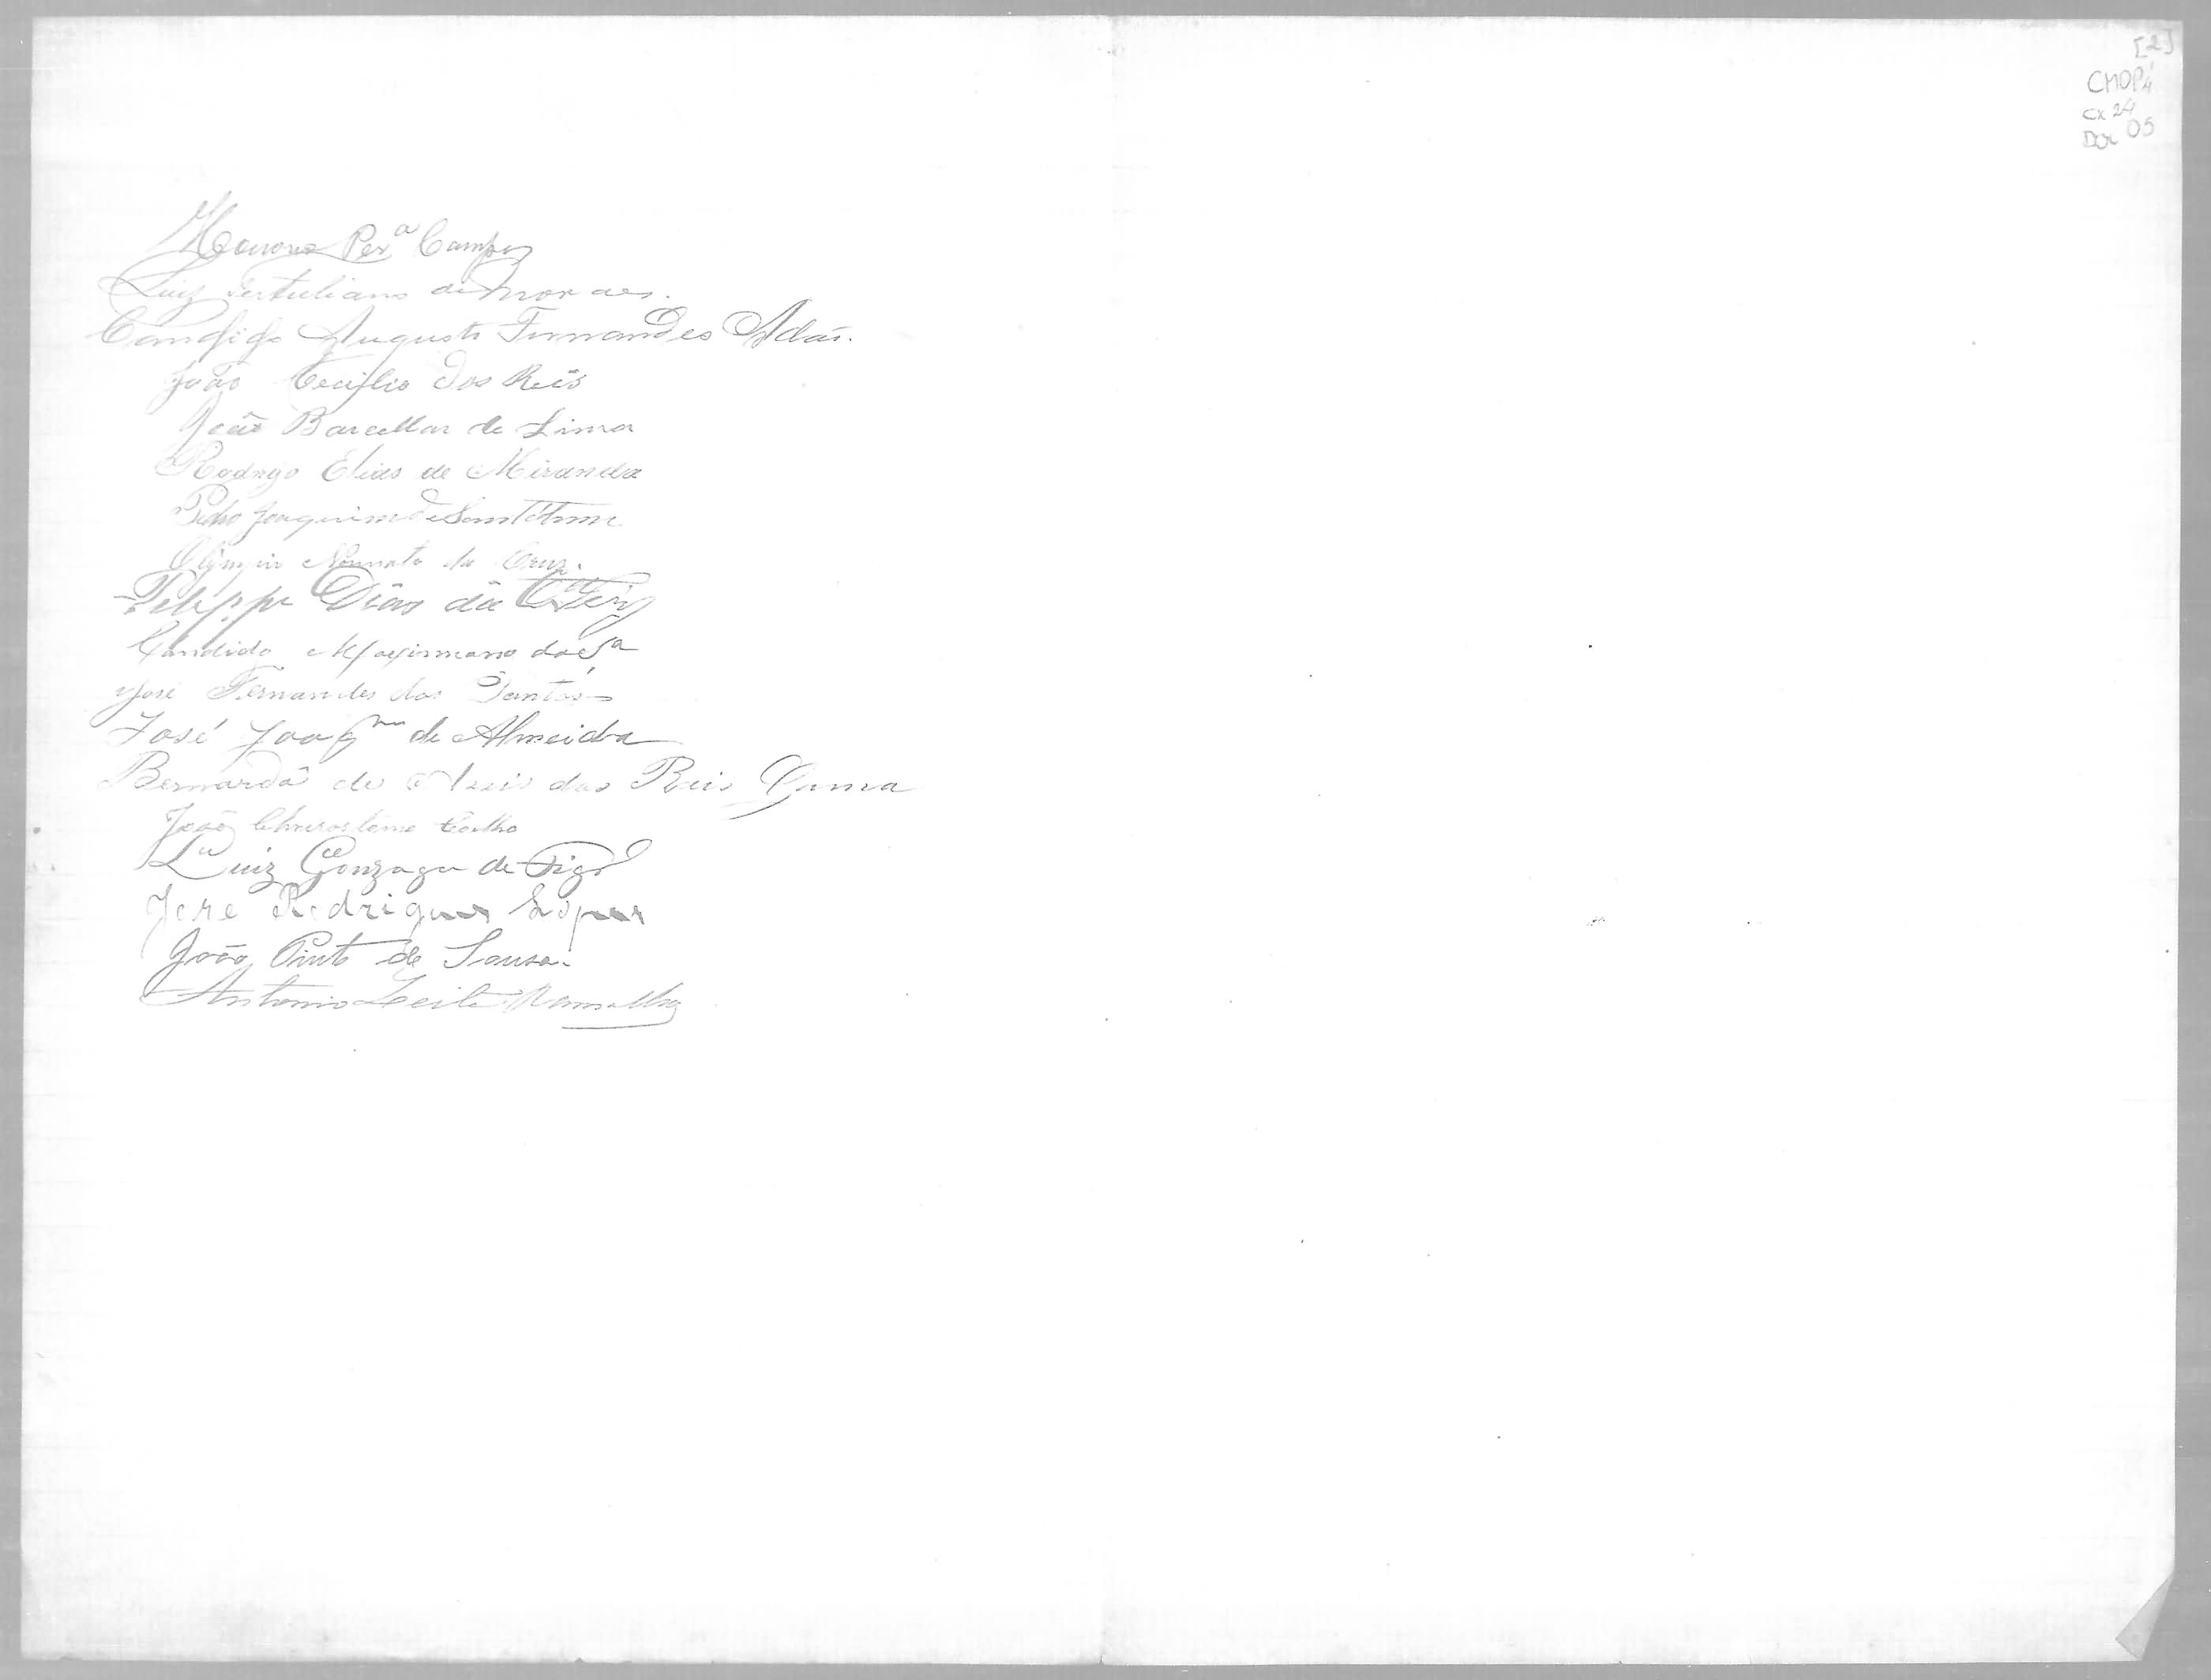 [2]
CMOP
CX 24
Doc 05
Honorio Perᵃ Campos
Luiz Tertuliano de Moraes.
Candido Augusto Fernandes Adaõ.
João Cecilio dos Reis
João Barcellar de Lima
Rodrigo Elias de Miranda
Pedro Joaquim de Sant'Anna
Olimpio Nonnato da Cruz.
Felippe Dias da
Candido Maximiano da Sᵃ
José Fernandes dos Santos
José Joaqᵐ de Almeida
Bernardo de Assis dos Reis Gama
João Chrisostomo Coelho
Luiz Gonzaga de Figᵈᵒ
José Rodrigues Lopes
João Pinto de Sousa.
Antonio Leite Ramalho